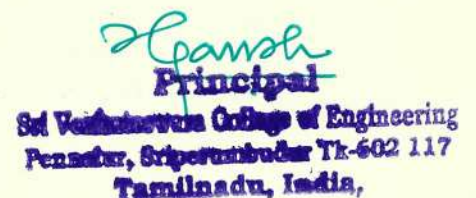 Principal
Sri Venkateswara College of Engineering
Pennalur, Sriperumbudur Tk-602 117
Tamilnadu, India,